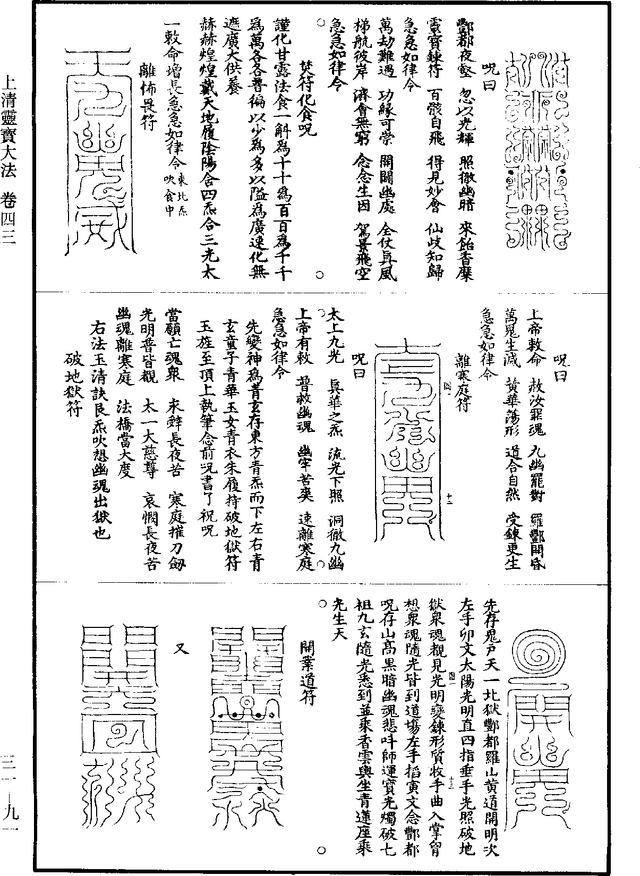 呪曰
酆都夜壑 忽以光輝 照徹幽暗 來飴香糜
靈寶鍊符 百骸自飛 得見妙會 仙歧知歸
急急如律令
萬劫難遇 功緣可崇 開闢幽處 全仗真風
梯航彼岸 濟會無窮 念念生因 駕景飛空
急急如律令
焚符化食呪
謹化甘露法食一斛為十十為百百為千千
為萬各各普徧以少為多以隘為廣速化無
遮廣大供養
赫赫煌煌戴天地履陰陽含四炁合三光太
一敕命增長急急如律令東北炁吹食中
離怖畏符
呪曰
上帝敕命 赦汝罪魂 九幽罷對 羅酆開昏
萬鬼生滅 黃華蕩形 道合自然 受鍊更生
急急如律令
離寒庭符
呪曰
太上九光 真華之炁 流光下照 洞徹九幽
上帝有敕 普救幽魂 幽牢苦棄 速離寒庭
急急如律令
先變神為青玄存東方青炁而下左右青
玄童子青華玉女青衣朱履持破地獄符
玉旌至頂上執筆念前呪書了祝呪
當願亡魂衆 來辭長夜苦 寒庭摧刀劒
光明普皆覩 太一大慈尊 哀憫長夜苦
幽魂離寒庭 法橋當大度
右法玉清訣艮炁吹想幽魂出獄也
破地獄符
先存鬼户天一北獄酆都羅山黃道開明次
左手卯文太陽光明直四指垂手光照破地
獄衆魂覩見光明變鍊形質收手曲入掌胷
想衆魂隨光皆到道場左手掐寅文念酆都
呪存山高黑暗幽魂悲呌師運寶光燭破七
祖九玄隨光悉到並乘香雲輿坐青蓮座乘
光生天
開業道符
又
上清靈寶大法 卷四三
三一 九一